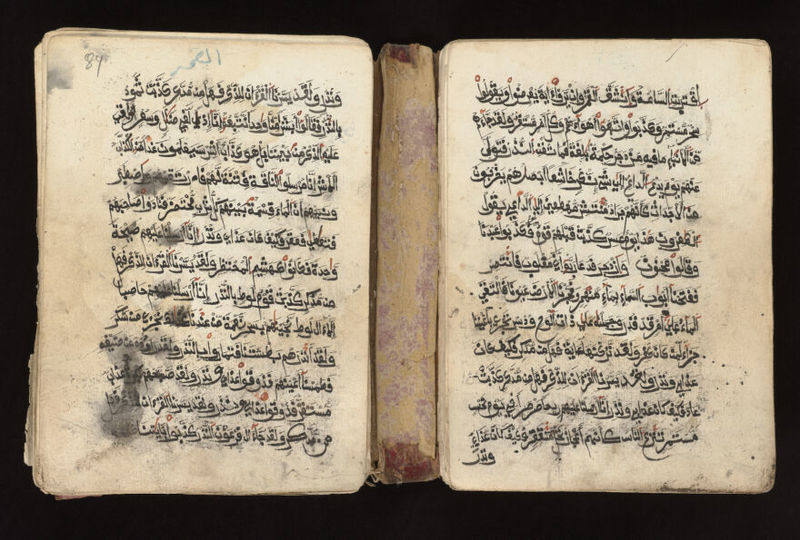 اقتربت الساعة وانشق القمر وان يروا ءاية يعرضوا ويقولوا
سحر مستمر وكذبوا واتبعوا اهواءهم وكل امر مستقر ولقد جاءهم
من الانباء ما فيه مزدجر حكمة بلغة فما تغن النذر فتول
عنهم يوم يدع الداع الى شيء نكر خشعا ابصرهم يخرجون
من الاجداث كانهم جراد منتشر مهطعين الى الداع يقول
الكفرون هذا يوم عسر كذبت قبلهم قوم نوح فكذبوا عبدنا
وقالوا مجنون وازدجر فدعا ربه اني مغلوب فانتصر
ففتحنا ابواب السماء بماء منهمر وفجرنا الارض عيونا فالتقى
الماء على امر قد قدر وحملنه على ذات الوح ودسر تجري باعيننا
جزاء لمن كان كفر ولقد تركنها ءاية فهل من مدكر فكيف كان
عذابي ونذر ولقد يسرنا القرءان للذكر فهل من مدكر كذبت
عاد فكيف كان عذابي ونذر انا ارسلنا عليهم ريحا صرصرا في يوم نحس
مستمر تنزع الناس كانهم اعجاز نخل منقعر فكيف كان عذابي
ونذر
84
القمر
ونذر ولقد يسرنا القرءان للذكر فهل من مدكر كذبت ثمود
بالنذر فقالوا ابشرا منا وحدا نتبعه انا اذا لفي ضلل وسعر القي
عليه الذكر من بيننا بل هو كذاب اشر سيعلمون غدا من الكذاب
الاشر انا مرسلوا الناقة فتنة لهم فارتقبهم واصطبر
ونبئهم ان الماء قسمة بينهم كل شرب محتضر فنادوا صاحبهم
فتعاطى فعقر فكيف كان عذابي ونذر انا ارسلنا عليهم صيحة
وحدة فكانوا كهشيم المحتظر ولقد يسرنا القرءان للذكر فهل
من مدكر كذبت قوم لوط بالنذر انا ارسلنا عليهم حاصبا
الا ءال لوط نجينهم بسحر نعمة من عندنا كذلك نجزي من شكر
ولقد انذرهم بطشتنا فتماروا بالنذر ولقد راودوه عن ضيفه
فطمسنا اعينهم فذوقوا عذابي ونذر ولقد صبحهم بكرة عذاب
مستقر فذوقوا عذابي ونذر ولقد يسرنا القرءان للذكر فهل
من مدكر ولقد جاء ءال فرعون النذر كذبوا بايتنا